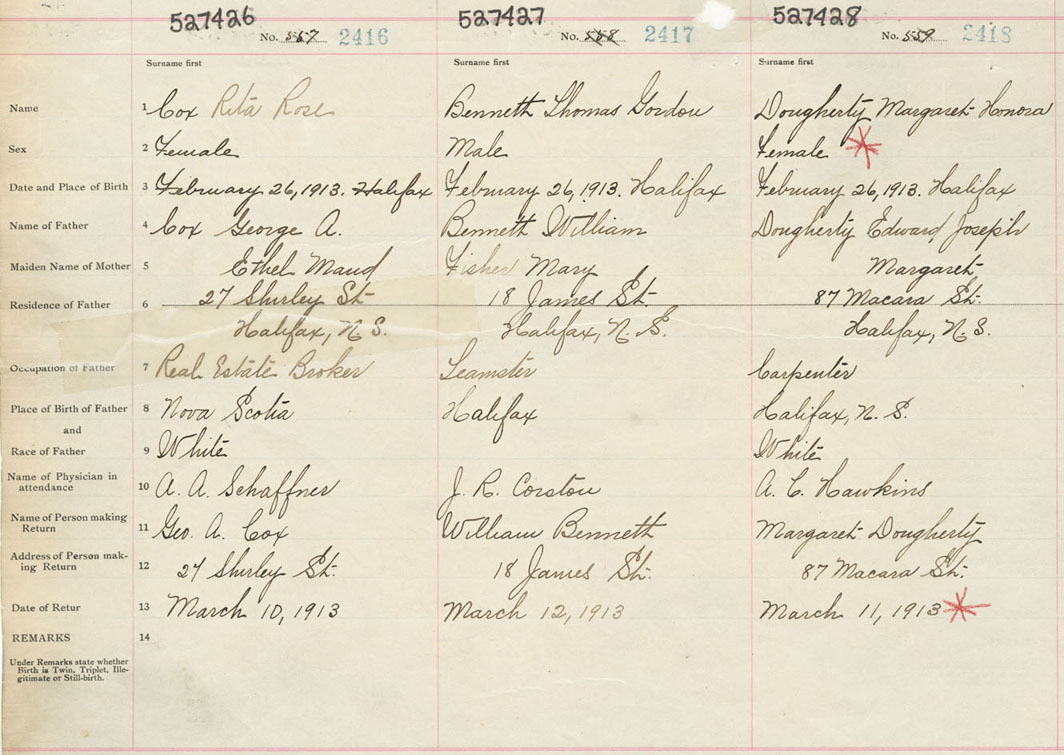 527426 527427 527428
No. 557 2416 No. 558 2417 No. 559 2418
Surname first Surname first Surname first
Name 1 Cox Rita Rose Bennett Thomas Gordon Dougherty Margaret Honora
Sex 2 Female Male Female
Date and Place of Birth 3 February 26, 1913. Halifax February 26, 1913. Halifax February 26, 1913. Halifax
Name of Father 4 Cox George A. Bennett William Dougherty Edward Joseph
Maiden Name of Mother 5 Ethel Maud Fisher Mary Margaret
Residence of Father 6 27 Shirley St. 18 James St. 87 Macara St.
Halifax, N.S. Halifax, N.S. Halifax, N.S.
Occupation of Father 7 Real Estate Broker Teamster Carpenter
Place of Birth of Father 8 Nova Scotia Halifax Halifax, N.S.
and
Race of Father 9 White White
Name of Physician in
attendance 10 A. A. Schaffner J. R. Corston A. C. Hawkins
Name of Person making
Return 11 Geo. A. Cox William Bennett Margaret Dougherty
Address of Person mak-
ing Return 12 27 Shirley St. 18 James St. 87 Macara St.
Date of Retur 13 March 10, 1913 March 12, 1913 March 11, 1913
REMARKS 14
Under Remarks state whether
Birth is Twin, Triplet, Ille-
gitimate or Still-birth.